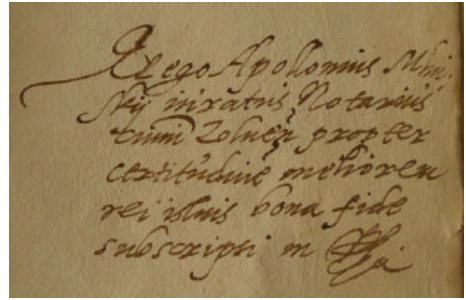 Et ego Apollonius Mlni,
skij iuratus Notarius
Zolueñ propter
certitudinē meliorem
rei istius bona fide
subscripsi m